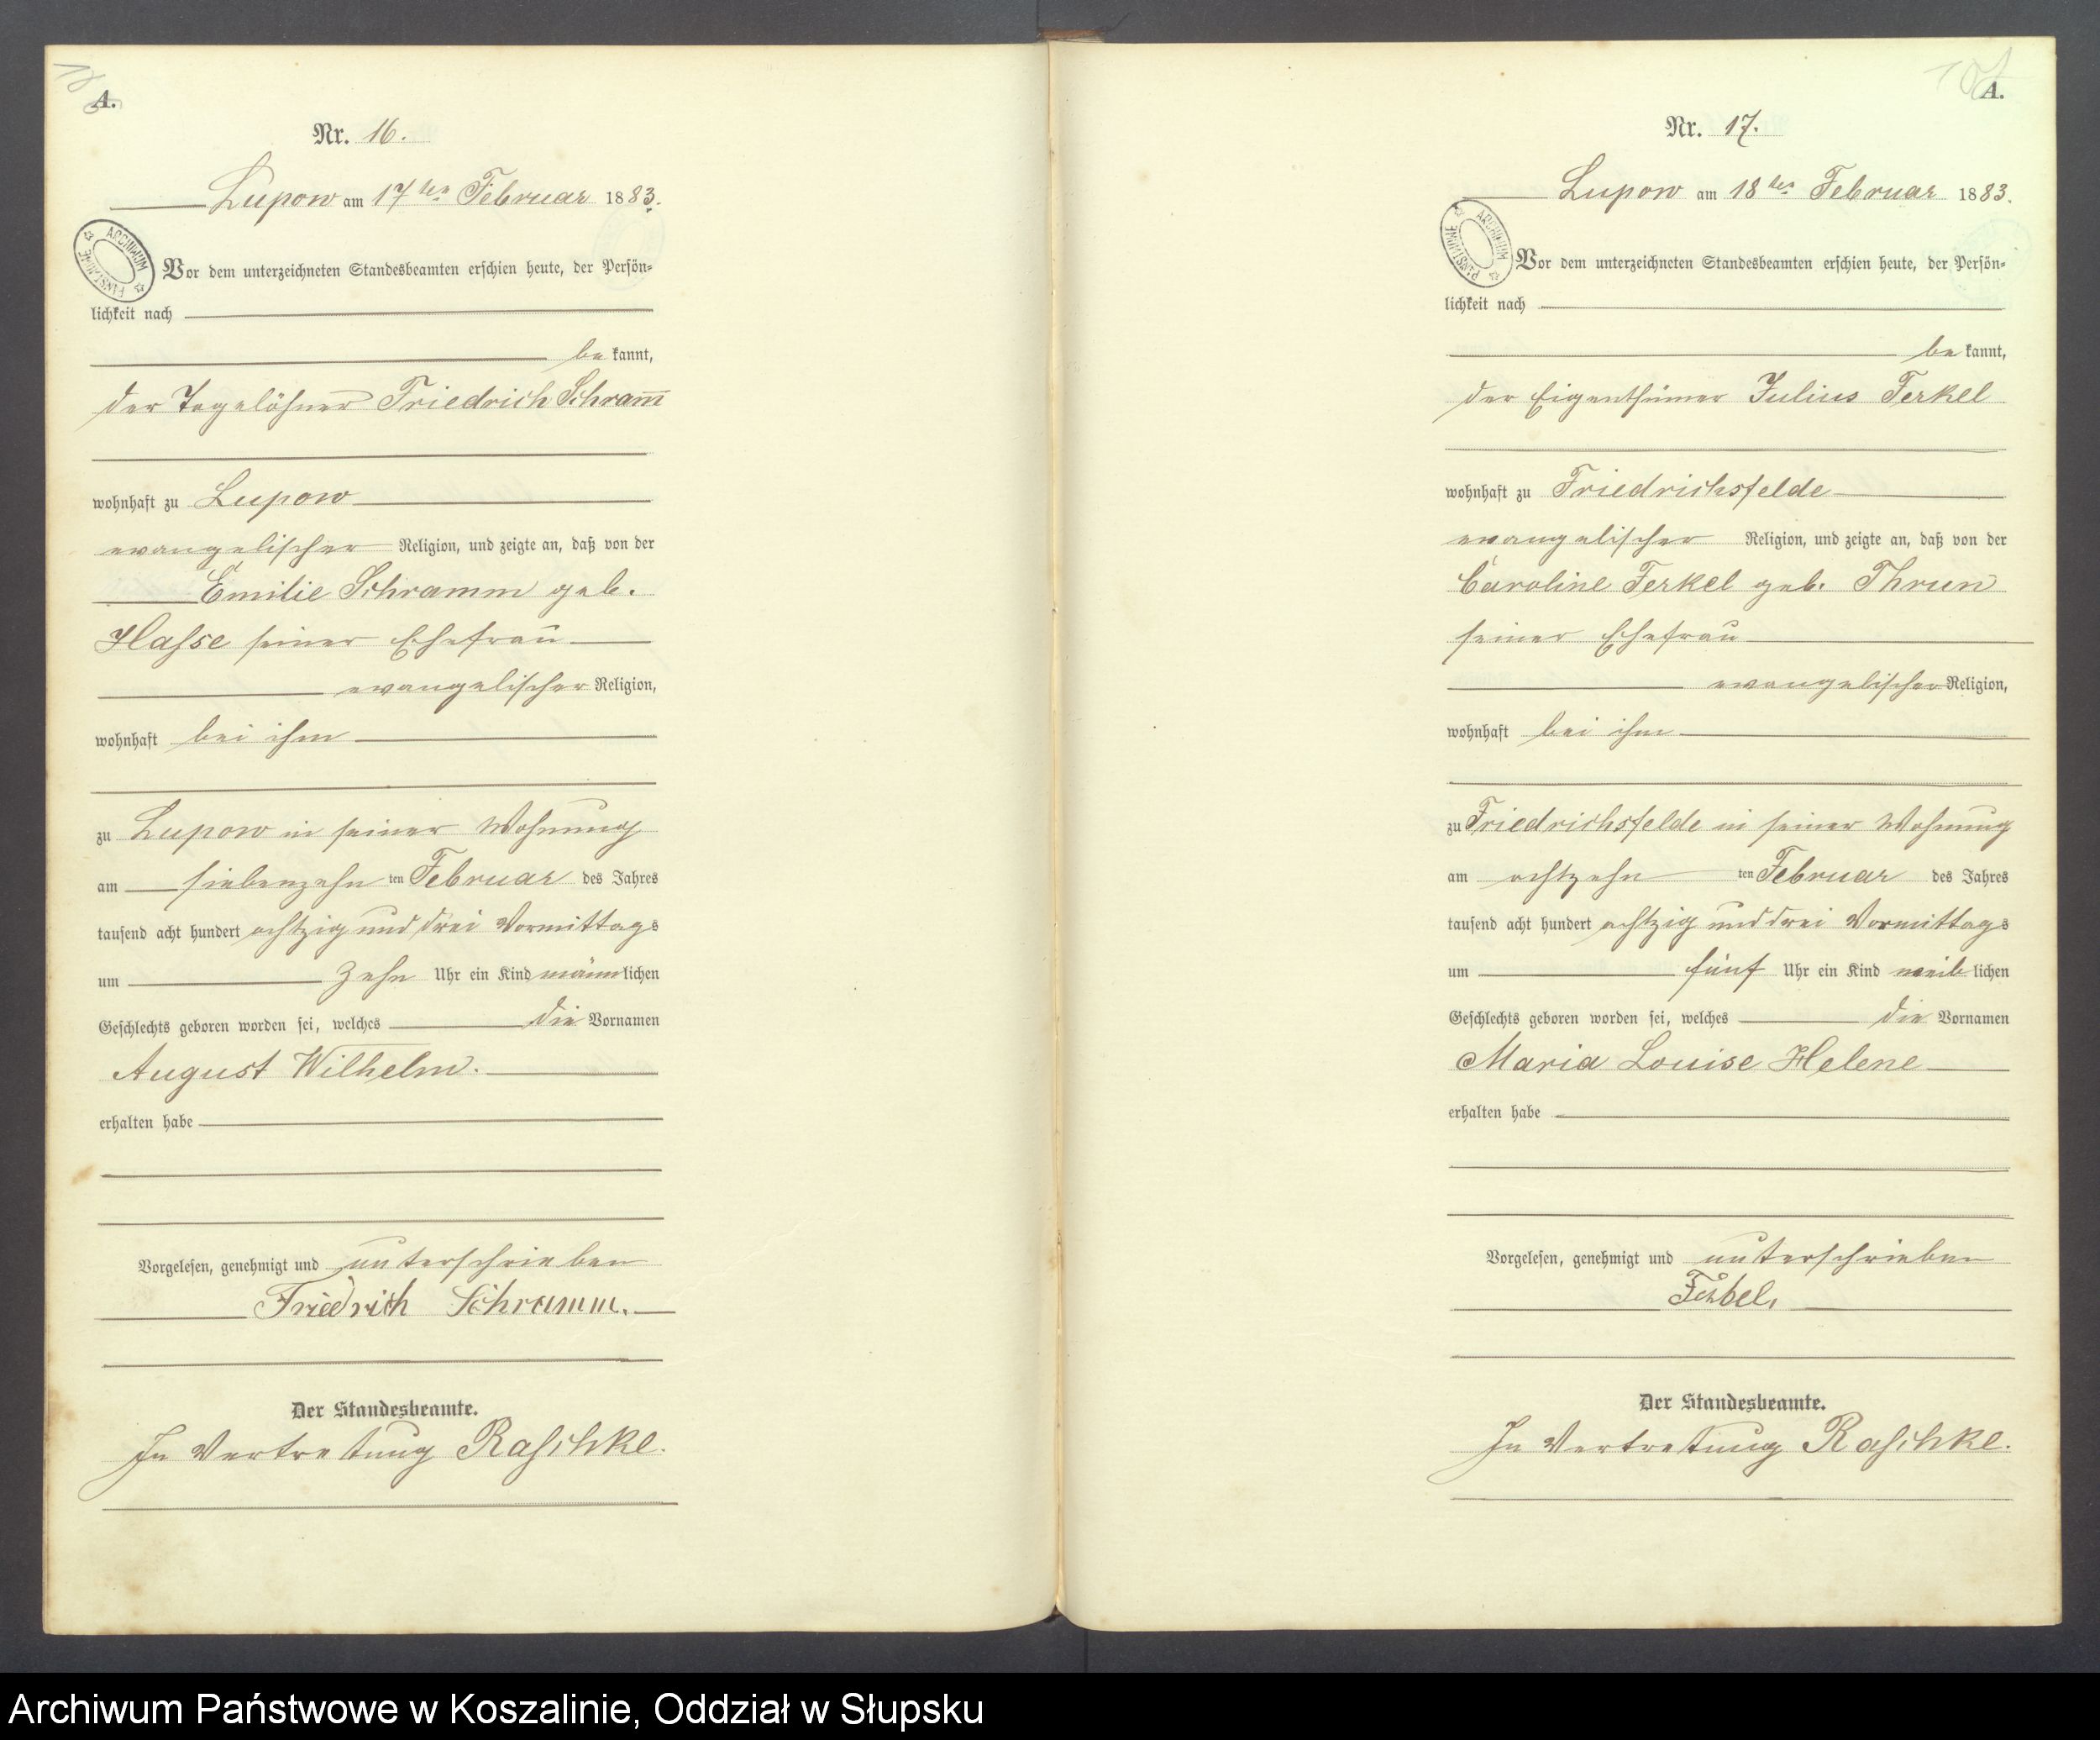 A.
Nr. 16.
Lupow am 17ten Februar 1883.
ARCHIWUM PAŃSTWOWE
Vor dem unterzeichneten Standesbeamten erschien heute, der Persön-
lichkeit nach
be kannt,
der Tagelöhner Friedrich Schram̅
wohnhaft zu Lupow
evangelischer Religion, und zeigte an, daß von der
Emilie Schramm geb.
Hasse seiner Ehefrau
evangelischer Religion,
wohnhaft bei ihm
zu Lupow in seiner Wohnung
am siebenzehn ten Februar des Jahres
tausend acht hundert achtzig und drei Vormittags
um zehn Uhr ein Kind männlichen
Geschlechts geboren worden sei, welches die Vornamen
August Wilhelm.
erhalten habe
Vorgelesen, genehmigt und unterschrieben
Friedrich Schramm.
Der Standesbeamte.
In Vertretung Raschke.
A.
Nr. 17.
Lupow am 18ten Februar 1883.
ARCHIWUM PAŃSTWOWE
Vor dem unterzeichneten Standesbeamten erschien heute, der Persön-
lichkeit nach
be kannt,
der Eigenthümer Julius Ferkel
wohnhaft zu Friedrichsfelde
evangelischer Religion, und zeigte an, daß von der
Caroline Ferkel geb. Thrun
seiner Ehefrau
evangelischer Religion,
wohnhaft bei ihm
zu Friedrichsfelde in seiner Wohnung
am achtzehn ten Februar des Jahres
tausend acht hundert achtzig und drei Vormittags
um fünf Uhr ein Kind weiblichen
Geschlechts geboren worden sei, welches die Vornamen
Maria Louise Helene
erhalten habe
Vorgelesen, genehmigt und unterschrieben
Der Standesbeamte.
In Vertretung Raschke.
Archiwum Państwowe w Koszalinie, Oddział w Słupsku